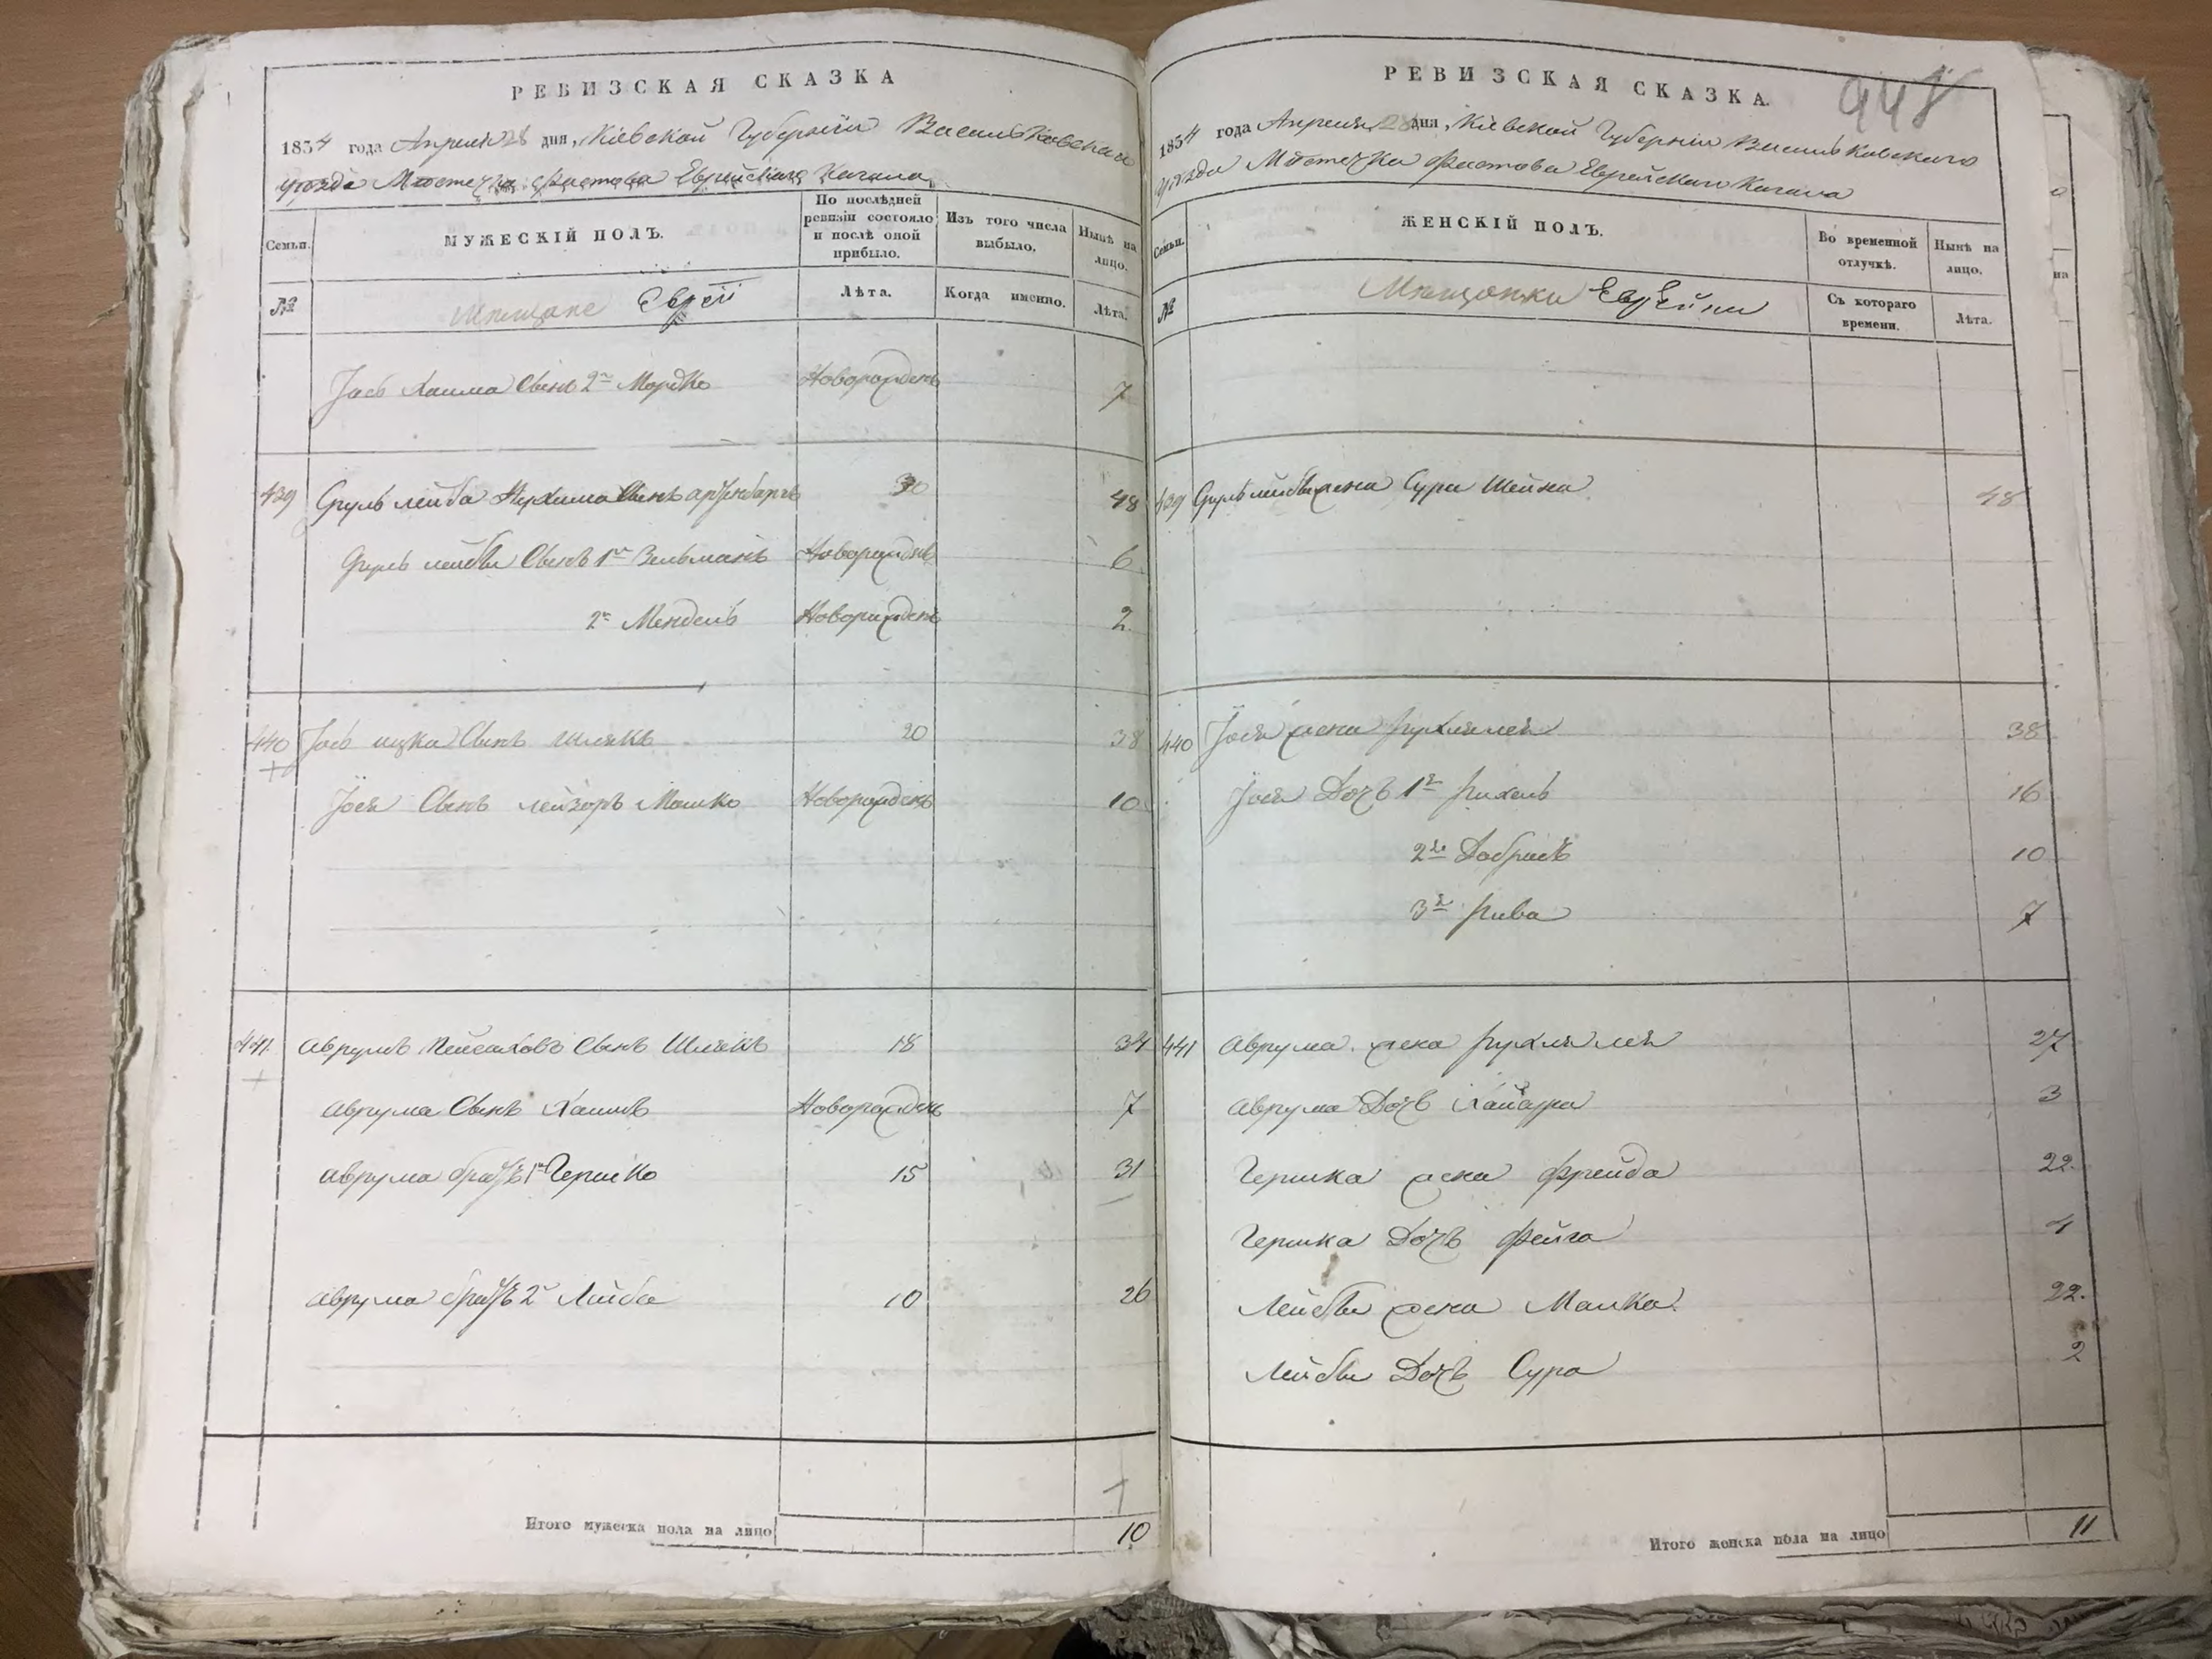 РЕВИЗСКАЯ СКАЗКА
1834 года Апреля 28 дня, Кіевской Губерніи Васильковскаго
уезда Местечка Фастова Еврейскаго Кагала
Семьи.
МУЖЕСКІЙ ПОЛЪ.
По послѣдней ревизіи состояло и послѣ оной прибыло.
Изъ того числа выбыло.
Нынѣ на лицо.
№
Мещане Евреи
Лѣта.
Когда именно.
Лѣта.
Іосъ Хаима Сынъ 2й Мордко Новорожденъ 7
439 Сруль Лейба Нухима Сынъ 30 48
Сруль Лейбы Сынъ 1й Зельманъ Новорожденъ 6
2й Мендель Новорожденъ 2
440 Іось Ицка Сынъ Шлякъ 20 38
Іося Сынъ Лейзоръ Мошко Новорожденъ 10
441 Аврумъ Пейсаховъ Сынъ Шлякъ 18 34
Аврума Сынъ Хаимъ Новорожденъ 7
Аврума братъ 1й Гершко 15 31
Аврума братъ 2й Лейба 10 26
Итого мужеска пола на лицо 10
РЕВИЗСКАЯ СКАЗКА.
948
1834 года Апреля 28 дня, Кіевской Губерніи Васильковскаго
уезда Местечка Фастова Еврейскаго Кагала
Семьи.
ЖЕНСКІЙ ПОЛЪ.
Во временной отлучкѣ.
Нынѣ на лицо.
№
Мещанки Еврейки
Съ котораго времени.
Лѣта.
439 Сруль Лейбы жена Сура Шейна 48
440 Іося жена Рухля Лея 38
Іося Дочь 1я Рихель 16
2я Добришъ 10
3я Рива 7
441 Аврума жена Рухля Лея 27
Аврума Дочь 3
Гершка жена Фрейда 22
Гершка Дочь Фейга 1
Лейбы жена Малка 22
Лейбы Дочь Сура 2
Итого женска пола на лицо 11